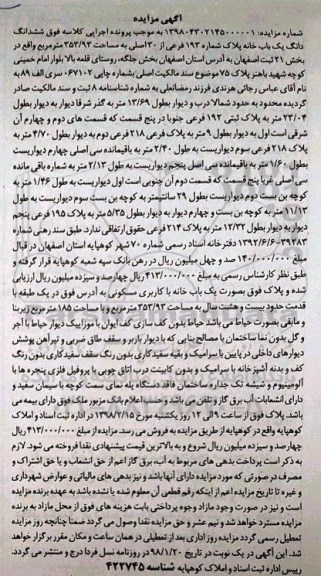 آگهی مزایده
شماره مزایده: ۱۳۹۸۰۴۳۰۲۱۴۵۰۰۰۰۰۱ به موجب پرونده اجرایی کلاسه فوق ششدانگ
دانگ یک باب خانه پلاک شماره ۱۹۳ فرعی از ۳۰ اصلی به مساحت ۳۵۳/۹۳ مترمربع واقع در
بخش ۲۱ ثبت اصفهان به آدرس استان اصفهان بخش جلگه، روستای قلعه بالا بلوار امام خمینی
کوچه شهید باهنر پلاک ۷۵ موضوع سند مالکیت اصلی بشماره چاپی ۰۶۷۱۰۲ سری الف ۸۹ به
نام آقای عباس رجائی هرندی فرزند رمضانعلی به شماره شناسنامه ۸ ثبت و سند مالکیت صادر
گردیده محدود به حدود شمالا درب و دیوار بطول ۱۳/۶۹ متر به گذر شرقا دیوار به دیوار بطول
۲۳/۰۴ متر به پلاک ثبتی ۱۹۲ فرعی جنوبا در پنج قسمت که قسمت های دوم و چهارم آن
شرقی است اول به دیوار بطول ۹ متر به پلاک ۲۱۸ فرعی دوم به دیوار بطول ۴/۷۰ متر به
پلاک ۲۱۸ فرعی سوم دیواریست به طول ۲/۴۰ متر به باقیمانده سی اصلی چهارم دیواریست
بطول ۱/۶۰ متر به باقیمانده سی اصل پنجم دیواریست به طول ۲/۱۳ متر به شماره باقی مانده
سی اصلی غربا پنج قسمت که قسمت دوم آن جنوبی است اول دیواریست به طول ۱/۴۶ متر به
کوچه بن بست دوم دیواریست بطول ۲۹ سانتیمتر به کوچه بن بست سوم دیواریست به طول
۱۱/۱۳ متر به کوچه بن بست و چهارم دیوار به دیوار بطول ۵/۳۵ متر به پلاک ۱۹۵ فرعی پنجم
دیوار به دیوار بطول ۱۲/۳۲ متر به پلاک ۲۱۴ فرعی حقوق ارتفاقی ندارد. طبق سند رهنی شماره
۳۹۴۸۳-۱۳۹۲/۶/۶ دفترخانه اسناد رسمی شماره ۷۰ شهر کوهپایه استان اصفهان در قبال
مبلغ ۱۴۰/۰۰۰/۰۰۰ صد و چهل میلیون ریال در رهن بانک سپه شعبه کوهپایه قرار گرفته و
طبق نظر کارشناس رسمی به مبلغ ۴۱۳/۰۰۰/۰۰۰ ریال چهارصد و سیزده میلیون ریال ارزیابی
شده و پلاک فوق بصورت یک باب خانه با کاربری مسکونی به آدرس فوق در یک طبقه با
قدمت حدود بیست و هشت سال به مساحت ۳۵۳/۹۳ مترمربع و با مساحت ۱۸۵ متر مربع زیربنا
و مابقی بصورت حیاط می باشد حیاط بدون کف سازی کف ایوان با موزاییک دیوار حیاط با آجر
و گل بدون نما ساختمان با مصالح بنایی که با دیوار باربر و سقف طاق ضربی و تیرآهن پوشش
دیوارهای داخلی در پایین با سرامیک و بقیه سفیدکاری بدون رنگ سقف سفید کاری بدون رنگ
کف و بدنه آشپزخانه با سرامیک و بدون کابینت درب اتاق چوبی با پروفیل فلزی پنجره ها با
آلومینیوم و شیشه تک جداره ساختمان فاقد دستگاه پله نمای سمت کوچه با سیمان سفید و
دارای انشعابات آب برق گاز و تلفن می باشد و حسب اعلام بانک مزبور ملک فوق دارای بیمه می
باشد. پلاک فوق از ساعت ۹ الی ۱۲ روز یکشنبه مورخ ۱۳۹۸/۲/۱۵ در اداره ثبت اسناد و املاک
کوهپایه واقع در کوهپایه از طریق مزایده به فروش می رسد. مزایده از مبلغ ۴۱۳/۰۰۰/۰۰۰ ریال
چهارصد و سیزده میلیون ریال شروع و به بالاترین قیمت پیشنهادی نقدا فروخته می شود. لازم
به ذکر است پرداخت بدهی های مربوط به آب، برق گاز اعم از حق انشعاب و یا حق اشتراک و
مصرف در صورتی که مورد مزایده دارای آنها باشد و نیز بدهی های مالیاتی و عوارض شهرداری
و غیره تا تاریخ مزایده اعم از اینکه رقم قطعی آن معلوم شده یا نشده باشد به عهده برنده مزایده
است و نیز در صورت وجود مازاد وجوه پرداختی بابت هزینه های فوق از محل مازاد به برنده
مزایده مسترد خواهد شد و نیم عشر و حق مزایده نقدا وصول می گردد ضمنا چنانچه روز مزایده
تعطیل رسمی گردد مزایده روز اداری بعد از تعطیلی در همان ساعت و مکان مقرر برگزار خواهد
شد. این آگهی در یک نوبت در تاریخ ۹۸/۱/۲۰ در روزنامه نسل فردا درج و منتشر می گردد.
رییس اداره ثبت اسناد و املاک کوهپایه شناسه ۴۲۲۷۴۵